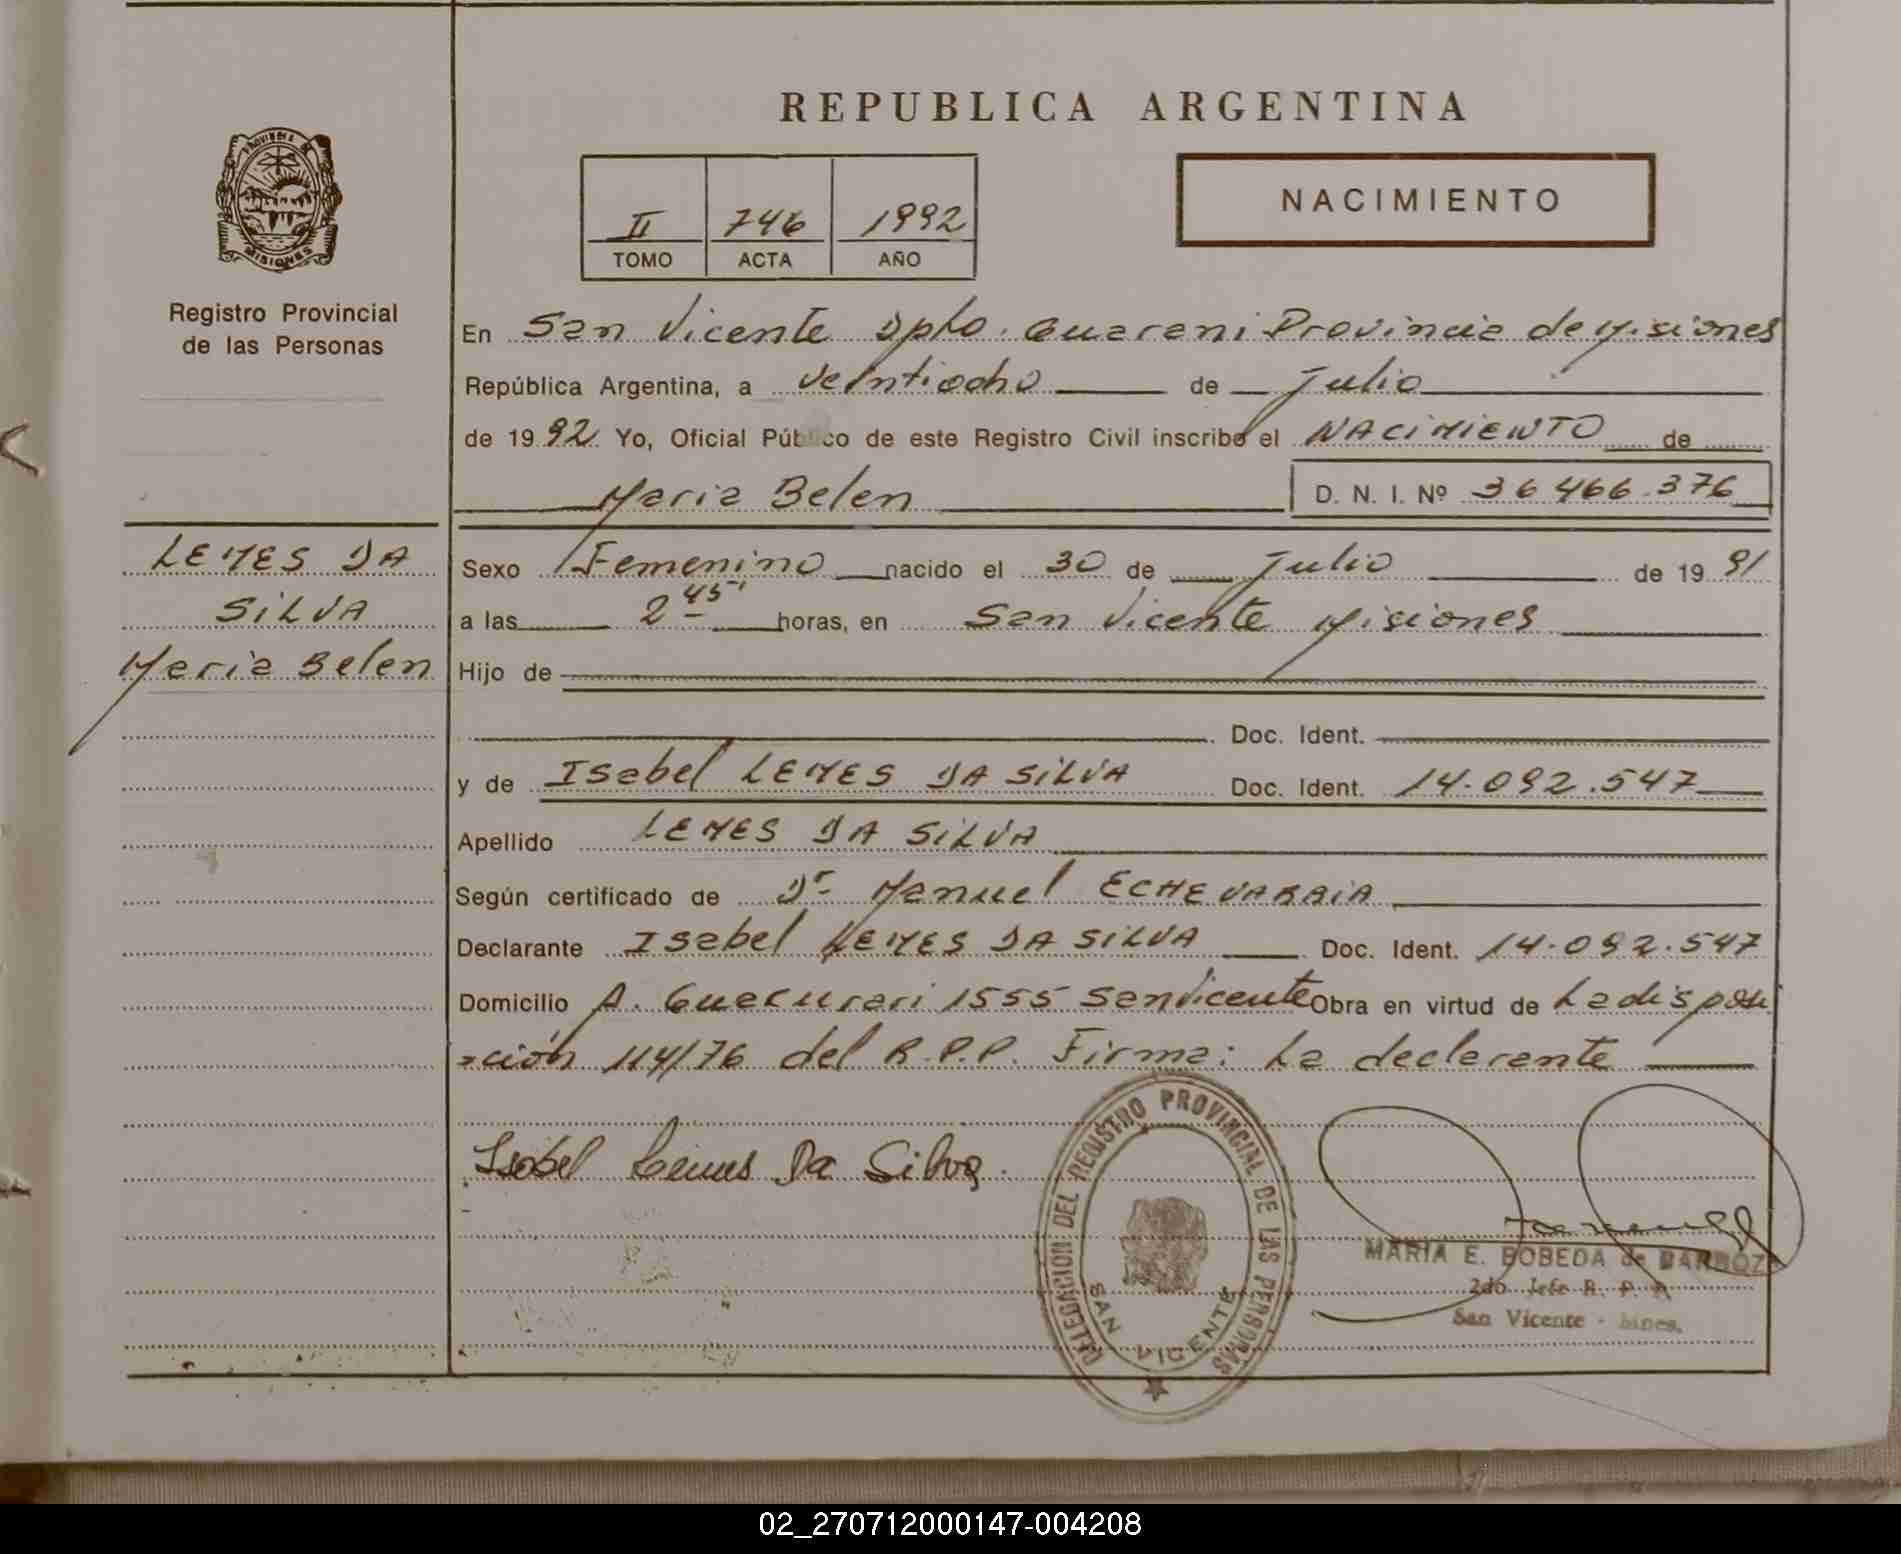 REPUBLICA ARGENTINA
PROVINCIA DE MISIONES
Registro Provincial
de las Personas
II 746 1992
TOMO ACTA AÑO
NACIMIENTO
En San Vicente Dpto. Guarani Provincia de Misiones
República Argentina, a veintiocho de Julio
de 1992 Yo, Oficial Público de este Registro Civil inscribo el NACIMIENTO de
Maria Belen D. N. I. Nº 36 466.376
LEMES DA
SILVA
Maria Belen
Sexo Femenino nacido el 30 de Julio de 1991
a las 2 45' horas, en San Vicente Misiones
Hijo de
Doc. Ident.
y de Isabel LEMES DA SILVA Doc. Ident. 14.092.547
Apellido LEMES DA SILVA
Según certificado de Dr Manuel ECHEVARRIA
Declarante Isabel LEMES DA SILVA Doc. Ident. 14.092.547
Domicilio A. Guacurari 1555 San Vicente Obra en virtud de La disposi
ción 114/76 del R.P.P. Firma: La declarante
Isabel Lemes Da Silva.
DELEGACION DEL REGISTRO PROVINCIAL DE LAS PERSONAS
SAN VICENTE
MARIA E. BOBEDA de BARBOZA
2do Jefe R. P. P.
San Vicente - Mnes.
02_270712000147-004208